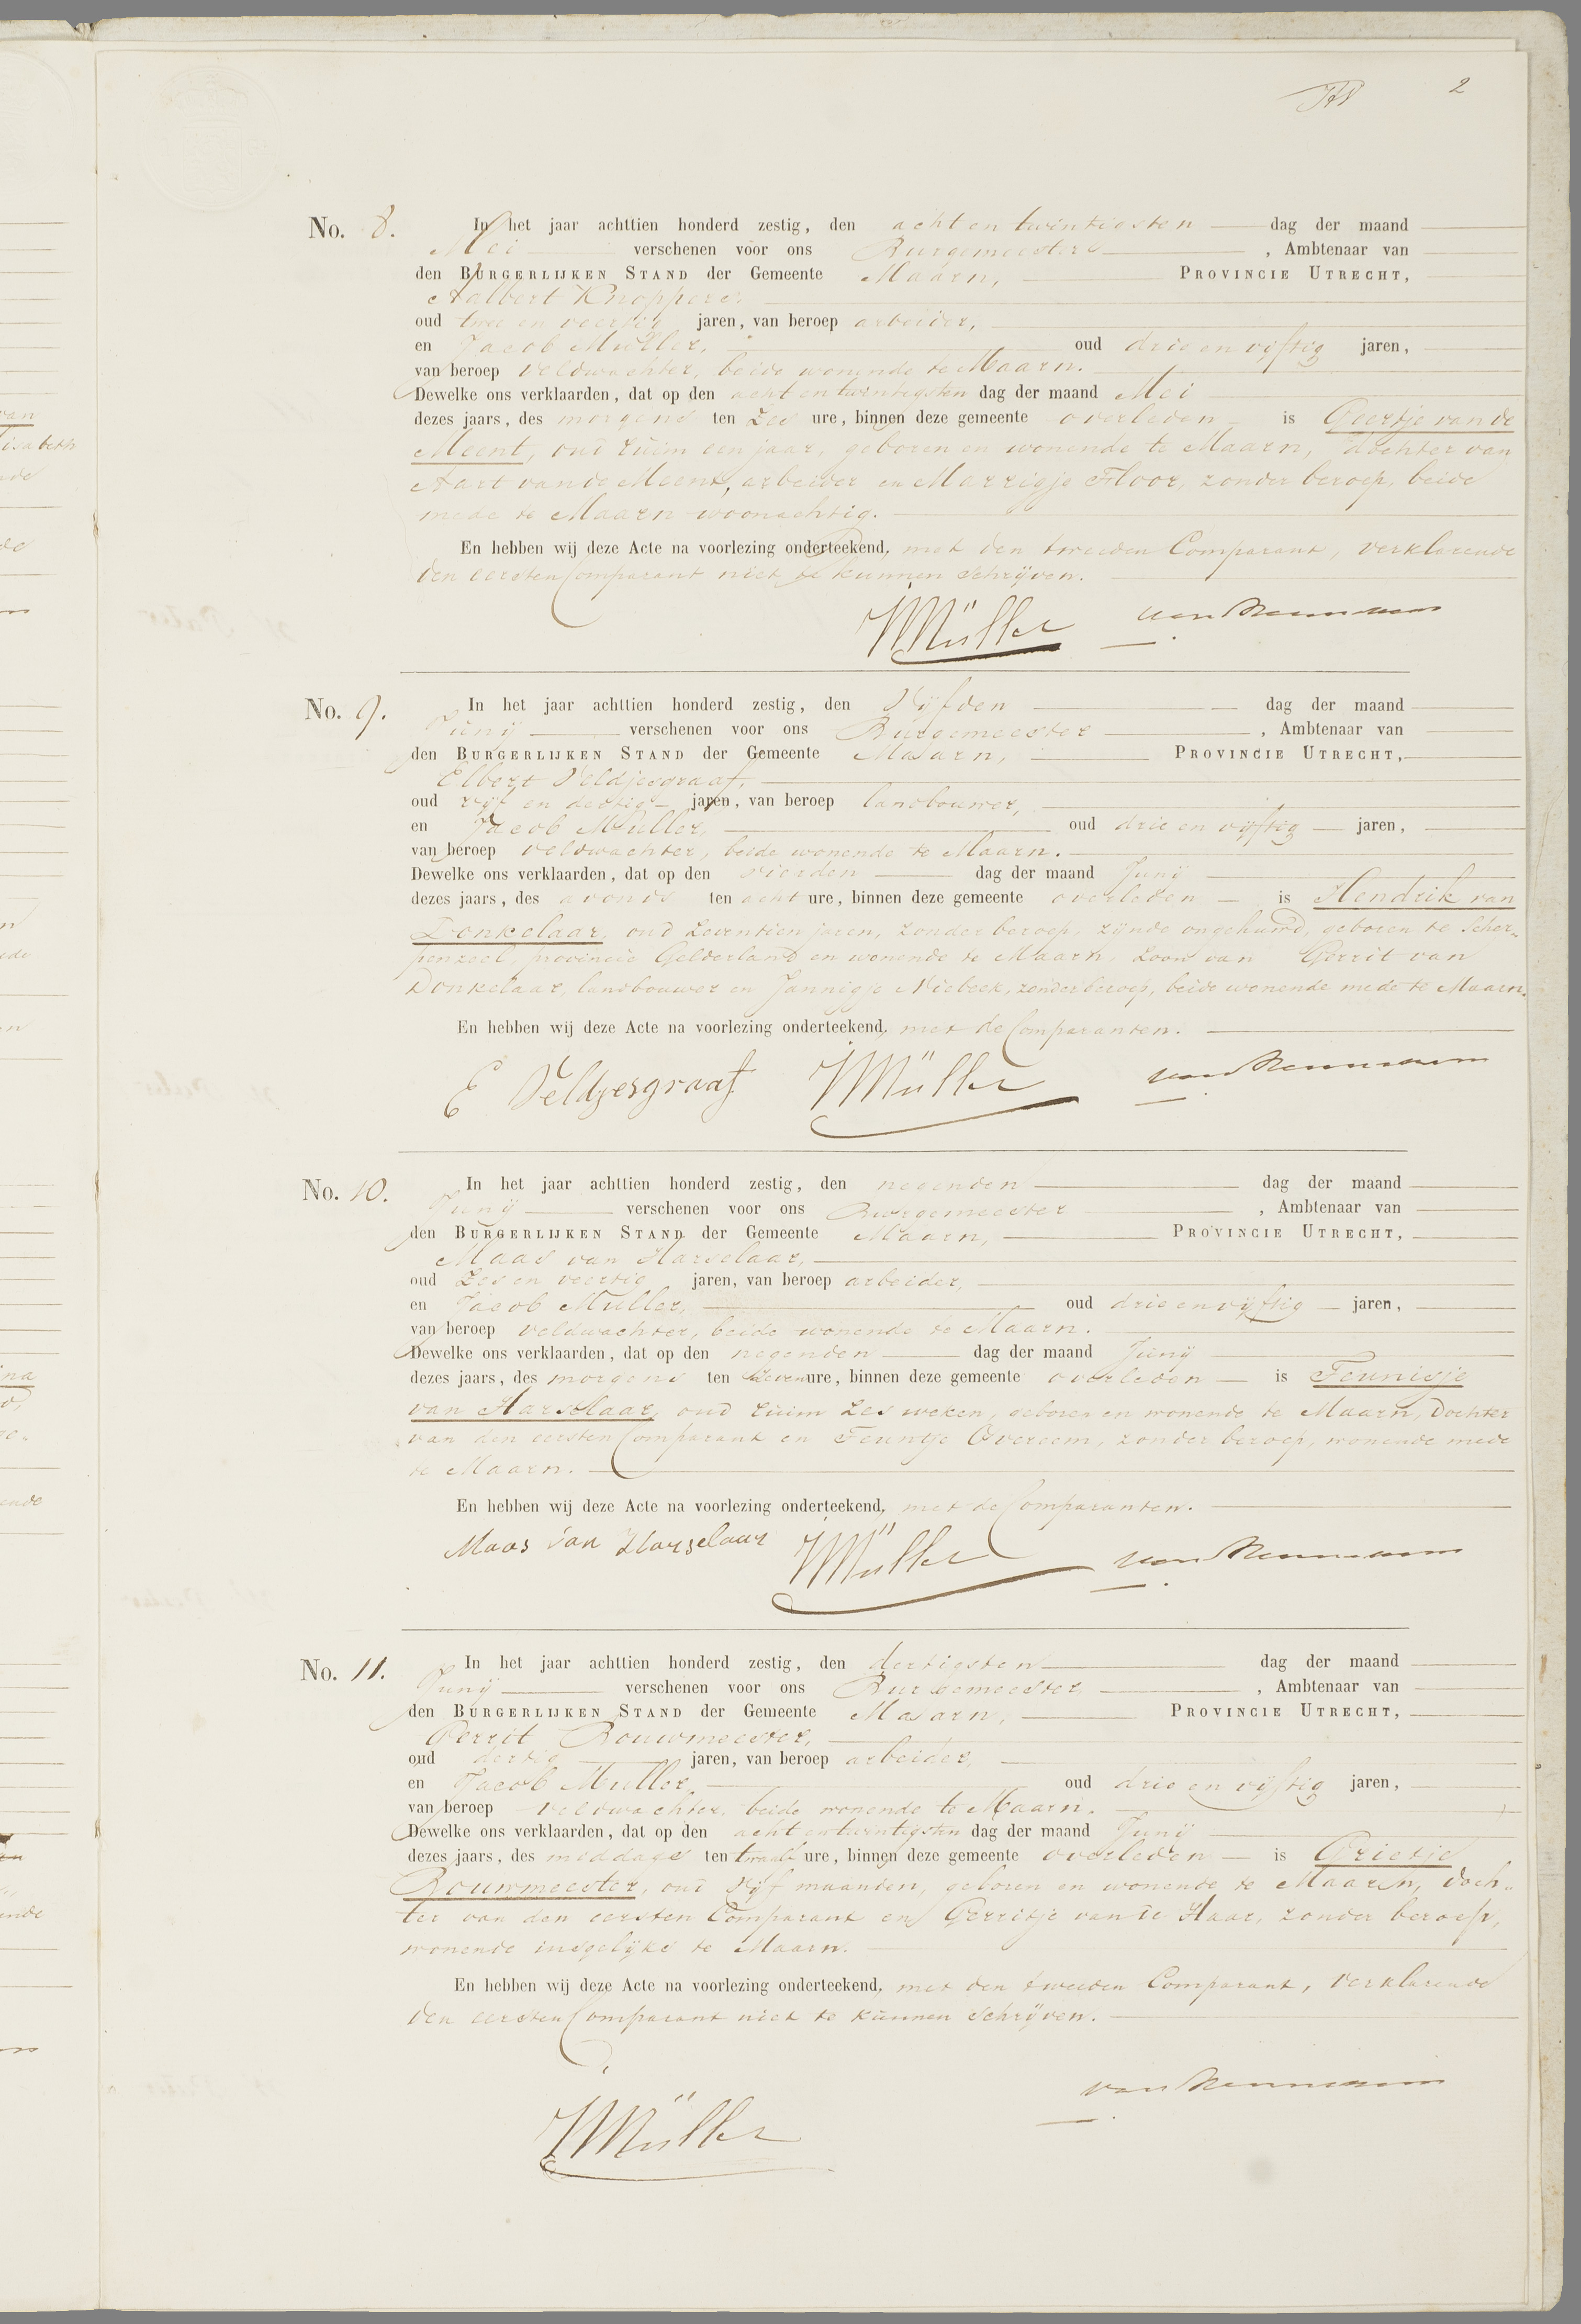 2
No. 8. In het jaar achttien honderd zestig, den acht en twintigsten dag der maand
Mei verschenen voor ons Burgemeester , Ambtenaar van
den BURGERLIJKEN STAND der Gemeente Maarn, PROVINCIE UTRECHT,
Aalbert Knoppers,
oud twee en veertig jaren, van beroep arbeider,
en Jacob Müller, oud drie en vijftig jaren,
van beroep veldwachter, beide wonende te Maarn.
Dewelke ons verklaarden, dat op den acht en twintigsten dag der maand Mei
dezes jaars, des morgens ten zes ure, binnen deze gemeente overleden is Geertje van de
Meent, oud ruim een jaar, geboren en wonende te Maarn, dochter van
Aart van de Meent, arbeider en Marrigje Floor, zonder beroep, beide
mede te Maarn woonachtig.
En hebben wij deze Acte na voorlezing onderteekend, met den tweeden Comparant, verklarende
den eersten Comparant niet te kunnen schrijven.
JMüller
No. 9. In het jaar achttien honderd zestig, den Vijfden dag der maand
Junij verschenen voor ons Burgemeester , Ambtenaar van
den BURGERLIJKEN STAND der Gemeente Maarn, PROVINCIE UTRECHT,
Elbert Veldjesgraaf,
oud vijf en dertig jaren, van beroep landbouwer,
en Jacob Müller, oud drie en vijftig jaren,
van beroep veldwachter, beide wonende te Maarn.
Dewelke ons verklaarden, dat op den vierden dag der maand Junij
dezes jaars, des avonds ten acht ure, binnen deze gemeente overleden is Hendrik van
Donkelaar, oud zeventien jaren, zonder beroep, zijnde ongehuwd, geboren te Scher„
penzeel, provincie Gelderland en wonende te Maarn, zoon van Gerrit van
Donkelaar, landbouwer en Jannigje Niebeek, zonder beroep, beide wonende mede te Maarn.
En hebben wij deze Acte na voorlezing onderteekend, met de Comparanten.
E Veldjesgraaf JMüller
No. 10. In het jaar achttien honderd zestig, den negenden dag der maand
Junij verschenen voor ons Burgemeester , Ambtenaar van
den BURGERLIJKEN STAND der Gemeente Maarn, PROVINCIE UTRECHT,
Maas van Harselaar,
oud zes en veertig jaren, van beroep arbeider,
en Jacob Müller, oud drie en vijftig jaren,
van beroep veldwachter, beide wonende te Maarn.
Dewelke ons verklaarden, dat op den negenden dag der maand Junij
dezes jaars, des morgens ten zeven ure, binnen deze gemeente overleden is Teunisje
van Harselaar, oud ruim zes weken, geboren en wonende te Maarn, dochter
van den eersten Comparant en Teuntje Overeem, zonder beroep, wonende mede
te Maarn.
En hebben wij deze Acte na voorlezing onderteekend, met de Comparanten.
Maas van Harselaar JMüller
No. 11. In het jaar achttien honderd zestig, den dertigsten dag der maand
Junij verschenen voor ons Burgemeester , Ambtenaar van
den BURGERLIJKEN STAND der Gemeente Maarn, PROVINCIE UTRECHT,
Gerrit Bouwmeester,
oud dertig jaren, van beroep arbeider,
en Jacob Müller, oud drie en vijftig jaren,
van beroep veldwachter, beide wonende te Maarn.
Dewelke ons verklaarden, dat op den acht en twintigsten dag der maand Junij
dezes jaars, des middags ten twaalf ure, binnen deze gemeente overleden is Grietje
Bouwmeester, oud vijf maanden, geboren en wonende te Maarn, doch„
ter van den eersten Comparant en Gerritje van de Haar, zonder beroep,
wonende insgelijks te Maarn.
En hebben wij deze Acte na voorlezing onderteekend, met den tweeden Comparant, verklarende
den eersten Comparant niet te kunnen schrijven.
JMüller